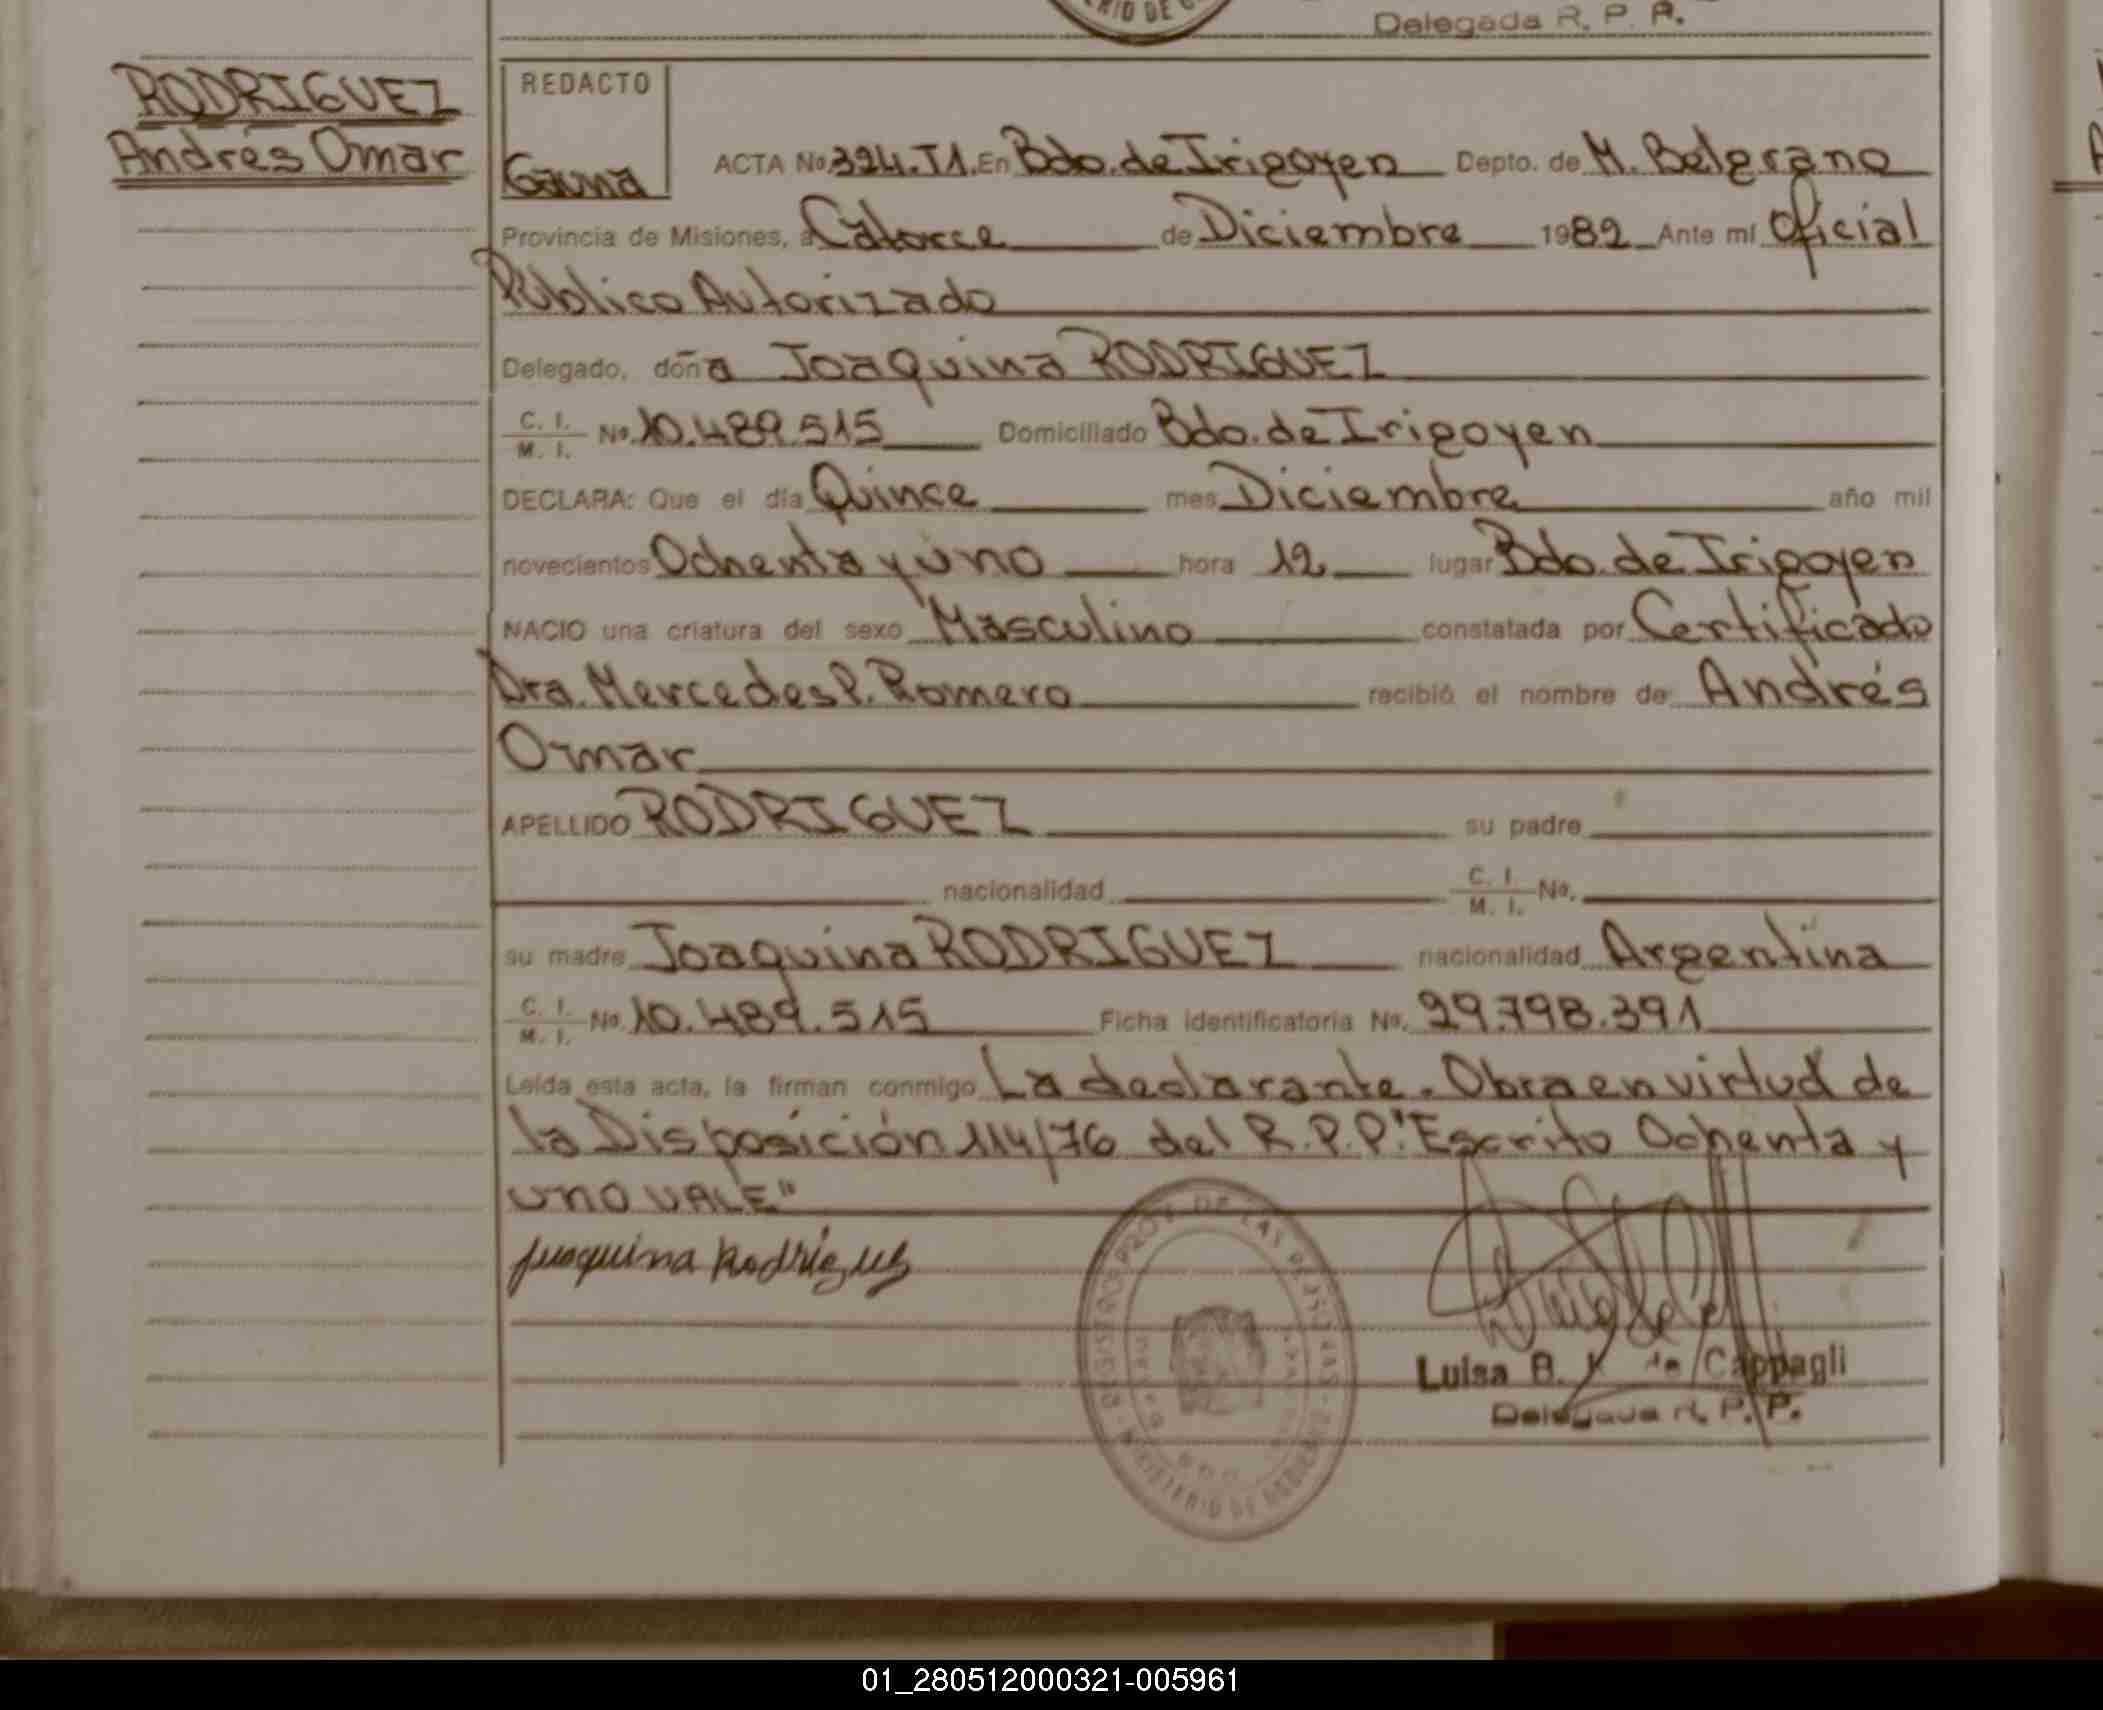 Delegada R. P. P.
RODRIGUEZ
Andrés Omar
REDACTO
Gauna
ACTA No. 324.T1. En Bdo. de Irigoyen Depto. de M. Belgrano
Provincia de Misiones, a Catorce de Diciembre 1982 Ante mí Oficial
Público Autorizado
Delegado, doña Joaquina RODRIGUEZ
C. I. M. I. No. 10.489.515 Domiciliado Bdo. de Irigoyen
DECLARA: Que el día Quince mes Diciembre año mil
novecientos Ochenta y uno hora 12 lugar Bdo. de Irigoyen
NACIO una criatura del sexo Masculino constatada por Certificado
Dra. Mercedes P. Romero recibió el nombre de Andrés
Omar
APELLIDO RODRIGUEZ su padre
nacionalidad C. I. M. I. No.
su madre Joaquina RODRIGUEZ nacionalidad Argentina
C. I. M. I. No. 10.489.515 Ficha identificatoria No. 29.798.391
Leída esta acta, la firman conmigo La declarante. Obra en virtud de
la Disposición 114/76 del R.P.P. "Escrito Ochenta y
uno VALE"
Juaquina Rodriguez
REGISTRO PROV. DE LAS PERSONAS
MINISTERIO DE GOBIERNO
Luisa B. de Cappagli
Delegada R. P. P.
01_280512000321-005961